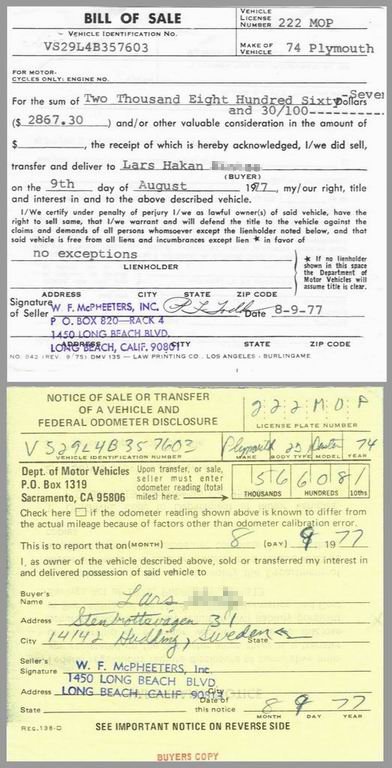 BILL OF SALE
VEHICLE LICENSE NUMBER 222 MOP
VEHICLE IDENTIFICATION NO.
VS29L4B357603
MAKE OF VEHICLE 74 Plymouth
FOR MOTOR-
CYCLES ONLY: ENGINE NO.
For the sum of Two Thousand Eight Hundred Sixty-Seven Dollars
and 30/100------------
($ 2867.30 ) and/or other valuable consideration in the amount of
$ , the receipt of which is hereby acknowledged, I/we did sell,
transfer and deliver to Lars Hakan
(BUYER)
on the 9th day of August 1977, my/our right, title
and interest in and to the above described vehicle.
I/We certify under penalty of perjury I/we as lawful owner(s) of said vehicle, have
the right to sell same, that I/we warrant and will defend the title to the vehicle against the
claims and demands of all persons whomsoever except the lienholder noted below, and that
said vehicle is free from all liens and incumbrances except lien * in favor of
no exceptions
LIENHOLDER
* If no lienholder
shown in this space
the Department of
Motor Vehicles will
assume title is clear.
ADDRESS CITY STATE ZIP CODE
Signature of Seller W. F. McPHEETERS, INC. Date 8-9-77
P O. BOX 820—RACK 4
1450 LONG BEACH BLVD.
ADDRESS CITY STATE ZIP CODE
LONG BEACH, CALIF. 90801
NO. 842 (REV. 9/75) DMV 135 — LAW PRINTING CO., LOS ANGELES - BURLINGAME
NOTICE OF SALE OR TRANSFER
OF A VEHICLE AND
FEDERAL ODOMETER DISCLOSURE
222 MOP
LICENSE PLATE NUMBER
VS29L4B357603
VEHICLE IDENTIFICATION NUMBER
Plymouth 2D Duster 74
MAKE BODY TYPE MODEL YEAR
Dept. of Motor Vehicles
P.O. Box 1319
Sacramento, CA 95806
Upon transfer, or sale,
seller must enter
odometer reading (total
miles) here.
566081
THOUSANDS HUNDREDS 10ths
Check here if the odometer reading shown above is known to differ from
the actual mileage because of factors other than odometer calibration error.
This is to report that on (MONTH) 8 (DAY) 9 1977
I, as owner of the vehicle described above, sold or transferred my interest in
and delivered possession of said vehicle to
Buyer's Name Lars
Address Stenbrottsvägen 31
City 14142 Huddinge, Sweden State
Seller's Signature W. F. McPHEETERS, Inc.
1450 LONG BEACH BLVD
Address LONG BEACH, CALIF. 90813
State
Date of this notice 8 9 77
MONTH DAY YEAR
REG. 138-D SEE IMPORTANT NOTICE ON REVERSE SIDE
BUYERS COPY